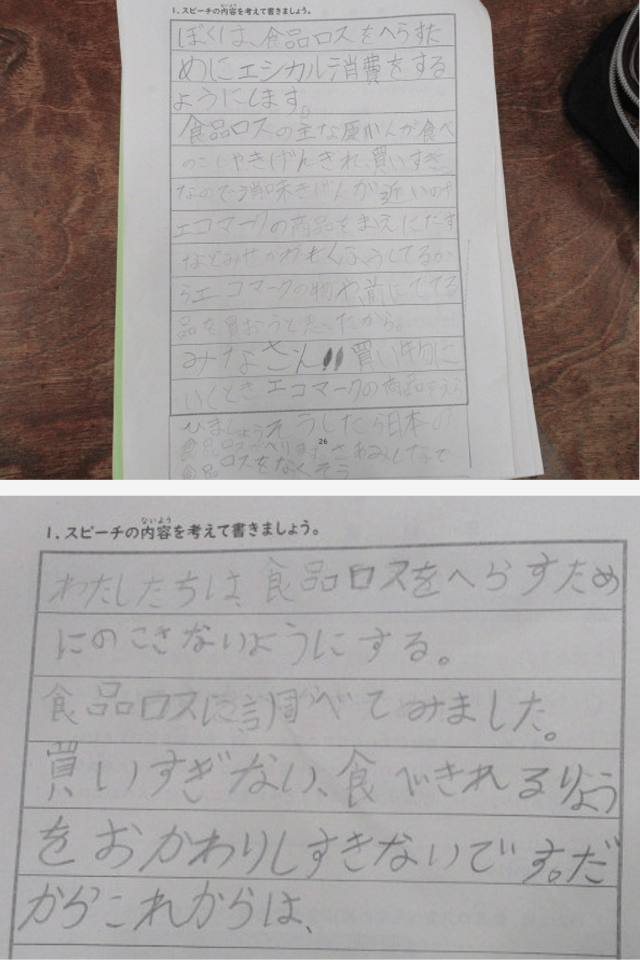 1、スピーチの内容を考えて書きましょう。
ないよう
ぼくは、食品ロスをへらすた
めにエシカル消費をする
ようにします。
食品ロスの主な原かんが食べ
のこしやきげんぎれ、買いすぎ
なので消味きげんが近いのや
エコマークの商品をまえにだす
などみせがわもくふうしてるか
らエコマークの物や前にでてる
品を買おうと思ったから。
みなさん!!買い物に
いくときエコマークの商品をえら
びましょうそうしたら日本の
26
食品ロスがへります。さあみんなで
食品ロスをなくそう
1、スピーチの内容を考えて書きましょう。
ないよう
わたしたちは、食品ロスをへらすため
にのこさないようにする。
食品ロスに調べてみました。
買いすぎない、食べきれるりょう
をおかわりしすぎないです。だ
からこれからは、